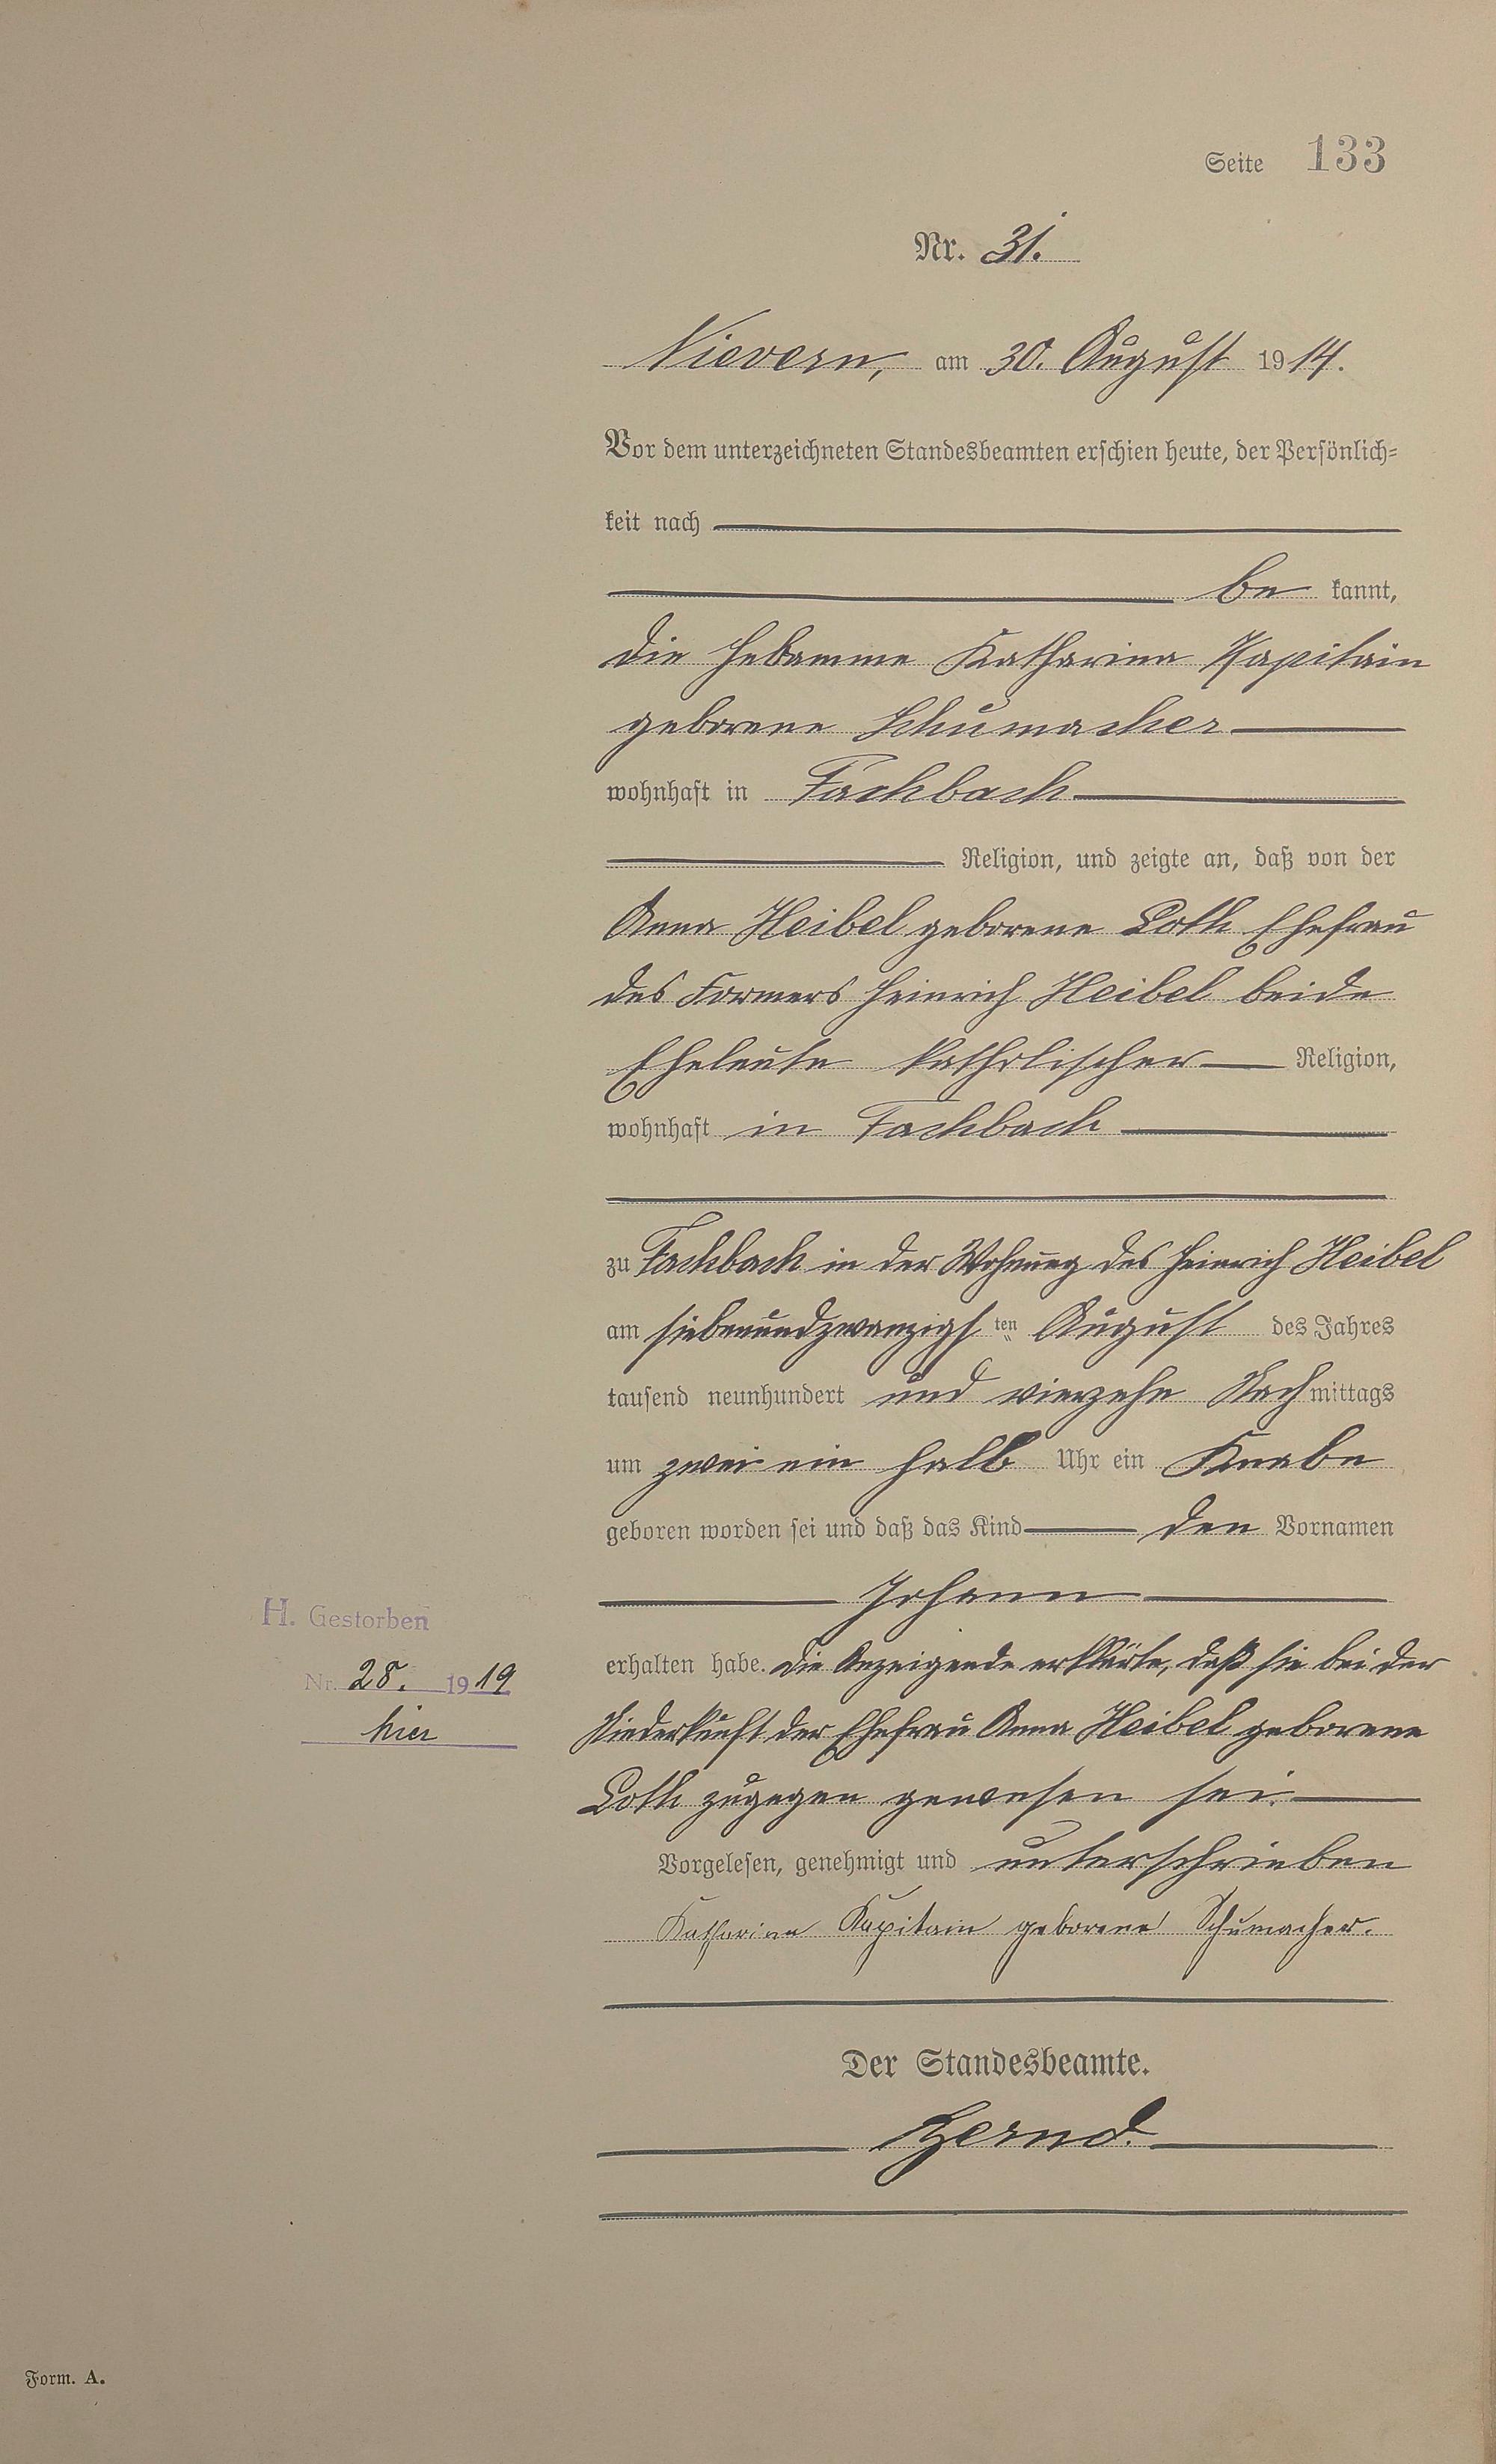 Seite 133
Nr. 31.
Nievern, am 30. August 1914.
Vor dem unterzeichneten Standesbeamten erschien heute, der Persönlich=
keit nach
be kannt,
die Hebamme Katharina Kapitain
geborene Schumacher
wohnhaft in Fachbach
Religion, und zeigte an, daß von der
Anna Heibel geborene Loth Ehefrau
des Formers Heinrich Heibel beide
Eheleute katholischer Religion,
wohnhaft in Fachbach
zu Fachbach in der Wohnung des Heinrich Heibel
am siebenundzwanzigsten August des Jahres
tausend neunhundert und vierzehn Nachmittags
um zwei ein halb Uhr ein Knabe
geboren worden sei und daß das Kind den Vornamen
Johann
H. Gestorben
Nr. 28. 1919
hier
erhalten habe. Die Anzeigende erklärte, daß sie bei der
Niederkunft der Ehefrau Anna Heibel geborene
Loth zugegen gewesen sei.
Vorgelesen, genehmigt und unterschrieben
Katharina Kapitain geborene Schumacher.
Der Standesbeamte.
Form. A.